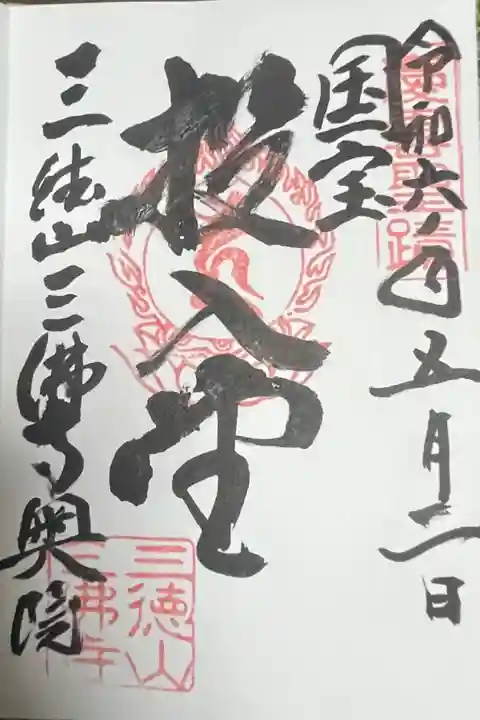 令和六年五月二日
国宝
投入堂
三徳山三佛寺奥院
三徳山
三佛寺